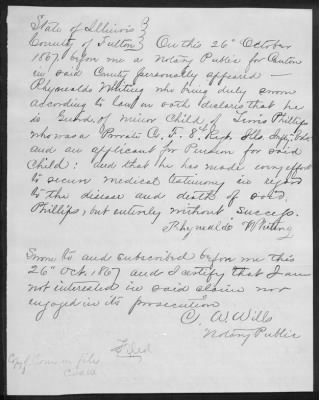 State of Illinois }
County of Fulton } On this 26" October
1867 before me a Notary Public for Canton
in said County personally appeared —
Rhynaldo Whiting who being duly sworn
according to law on oath declares that he
is Guard. of minor Child of Lewis Phillips
who was a Private Co. F. 8th Regt. Ills
and an applicant for Pension for said
Child: and that he has made every effort
to secure medical testimony in regard
to the disease and death of said
Phillips, but entirely without success.
Rhynaldo Whiting
Sworn to and subscribed before me this
26" Oct. 1867 and I certify that I am
not interested in said claim nor
engaged in its prosecution
C. W. Wills
Notary Public
Filed